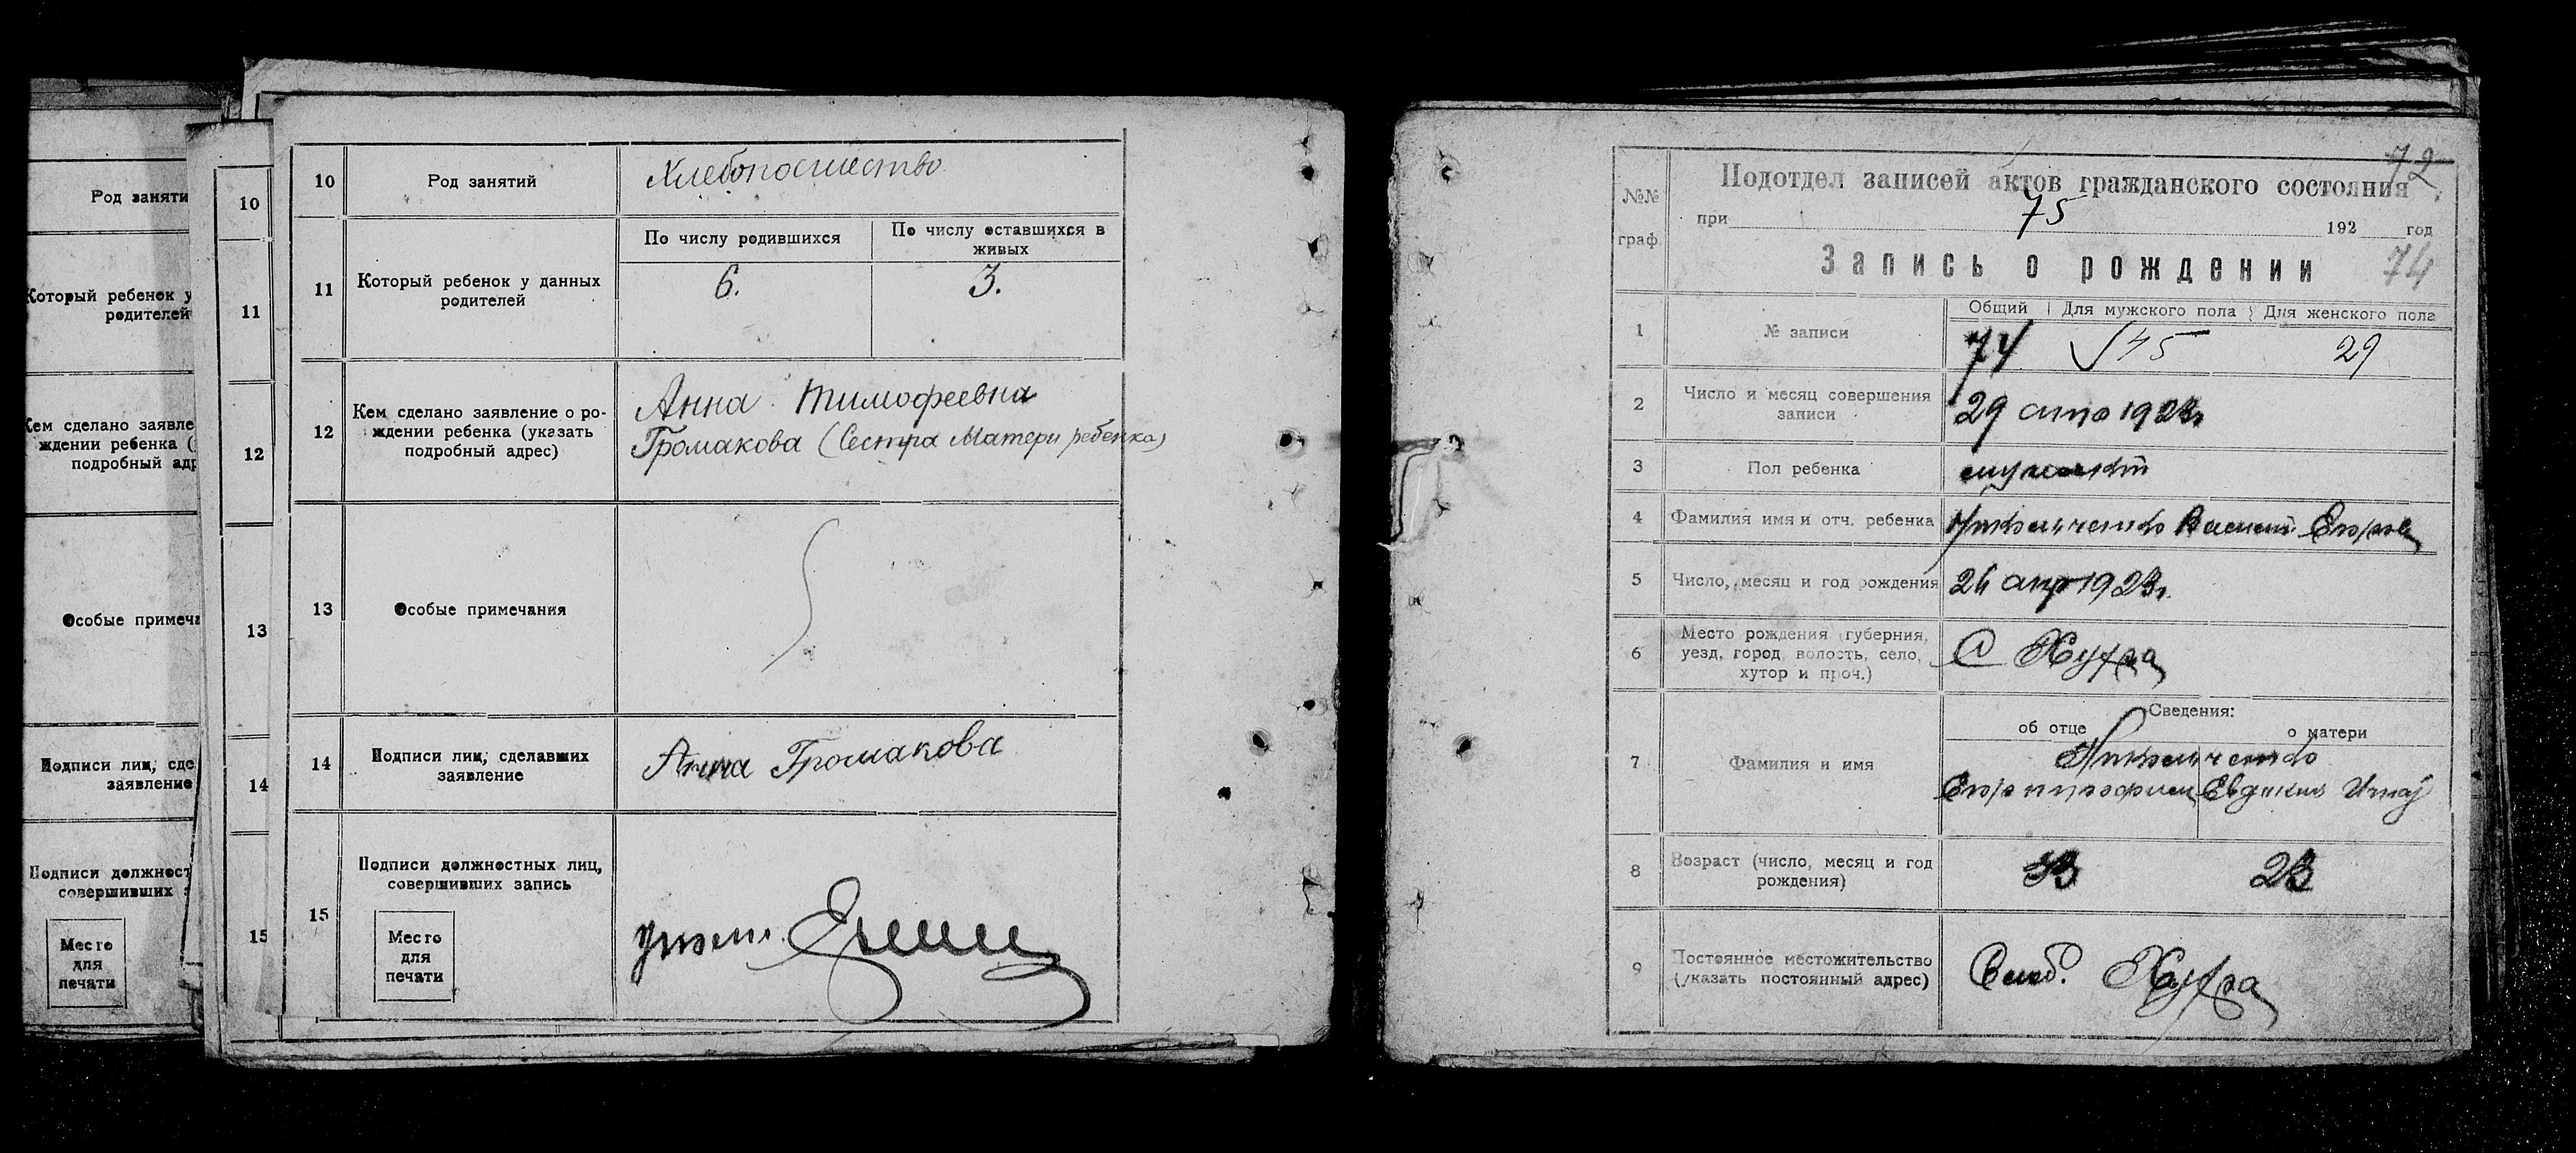 Род заняти
Который ребенок у
родителей
Кем сделано заявле
ждении ребенка (
подробный адр
Особые примеча
Подписи лиц, сде
заявление
Подписи должност
совершивших з
Место
для
печати
10
11
12
13
14
15
10 Род занятий Хлебопашество
11 Который ребенок у данных
родителей
По числу родившихся По числу оставшихся в
живых
6. 3.
12 Кем сделано заявление о ро-
ждении ребенка (указать
подробный адрес)
Анна Тимофеевна
Громакова (Сестра Матери ребенка)
13 Особые примечания
14 Подписи лиц, сделавших
заявление
Анна Громакова
15 Подписи должностных лиц,
совершивших запись
Место
для
печати
72
№№
граф.
Подотдел записей актов гражданского состояния
при 75 192 год
Запись о рождении 74
1 № записи
Общий Для мужского пола Для женского пола
74 45 29
2 Число и месяц совершения
записи
29 1923г
3 Пол ребенка мужской
4 Фамилия имя и отч. ребенка Василий
5 Число, месяц и год рождения 26 апр 1923г.
6 Место рождения (губерния,
уезд, город, волость, село,
хутор и проч.)
7 Фамилия и имя
Сведения:
об отце о матери
Евдокия
8 Возраст (число, месяц и год
рождения)
33 23
9 Постоянное местожительство
(указать постоянный адрес)
Слоб.